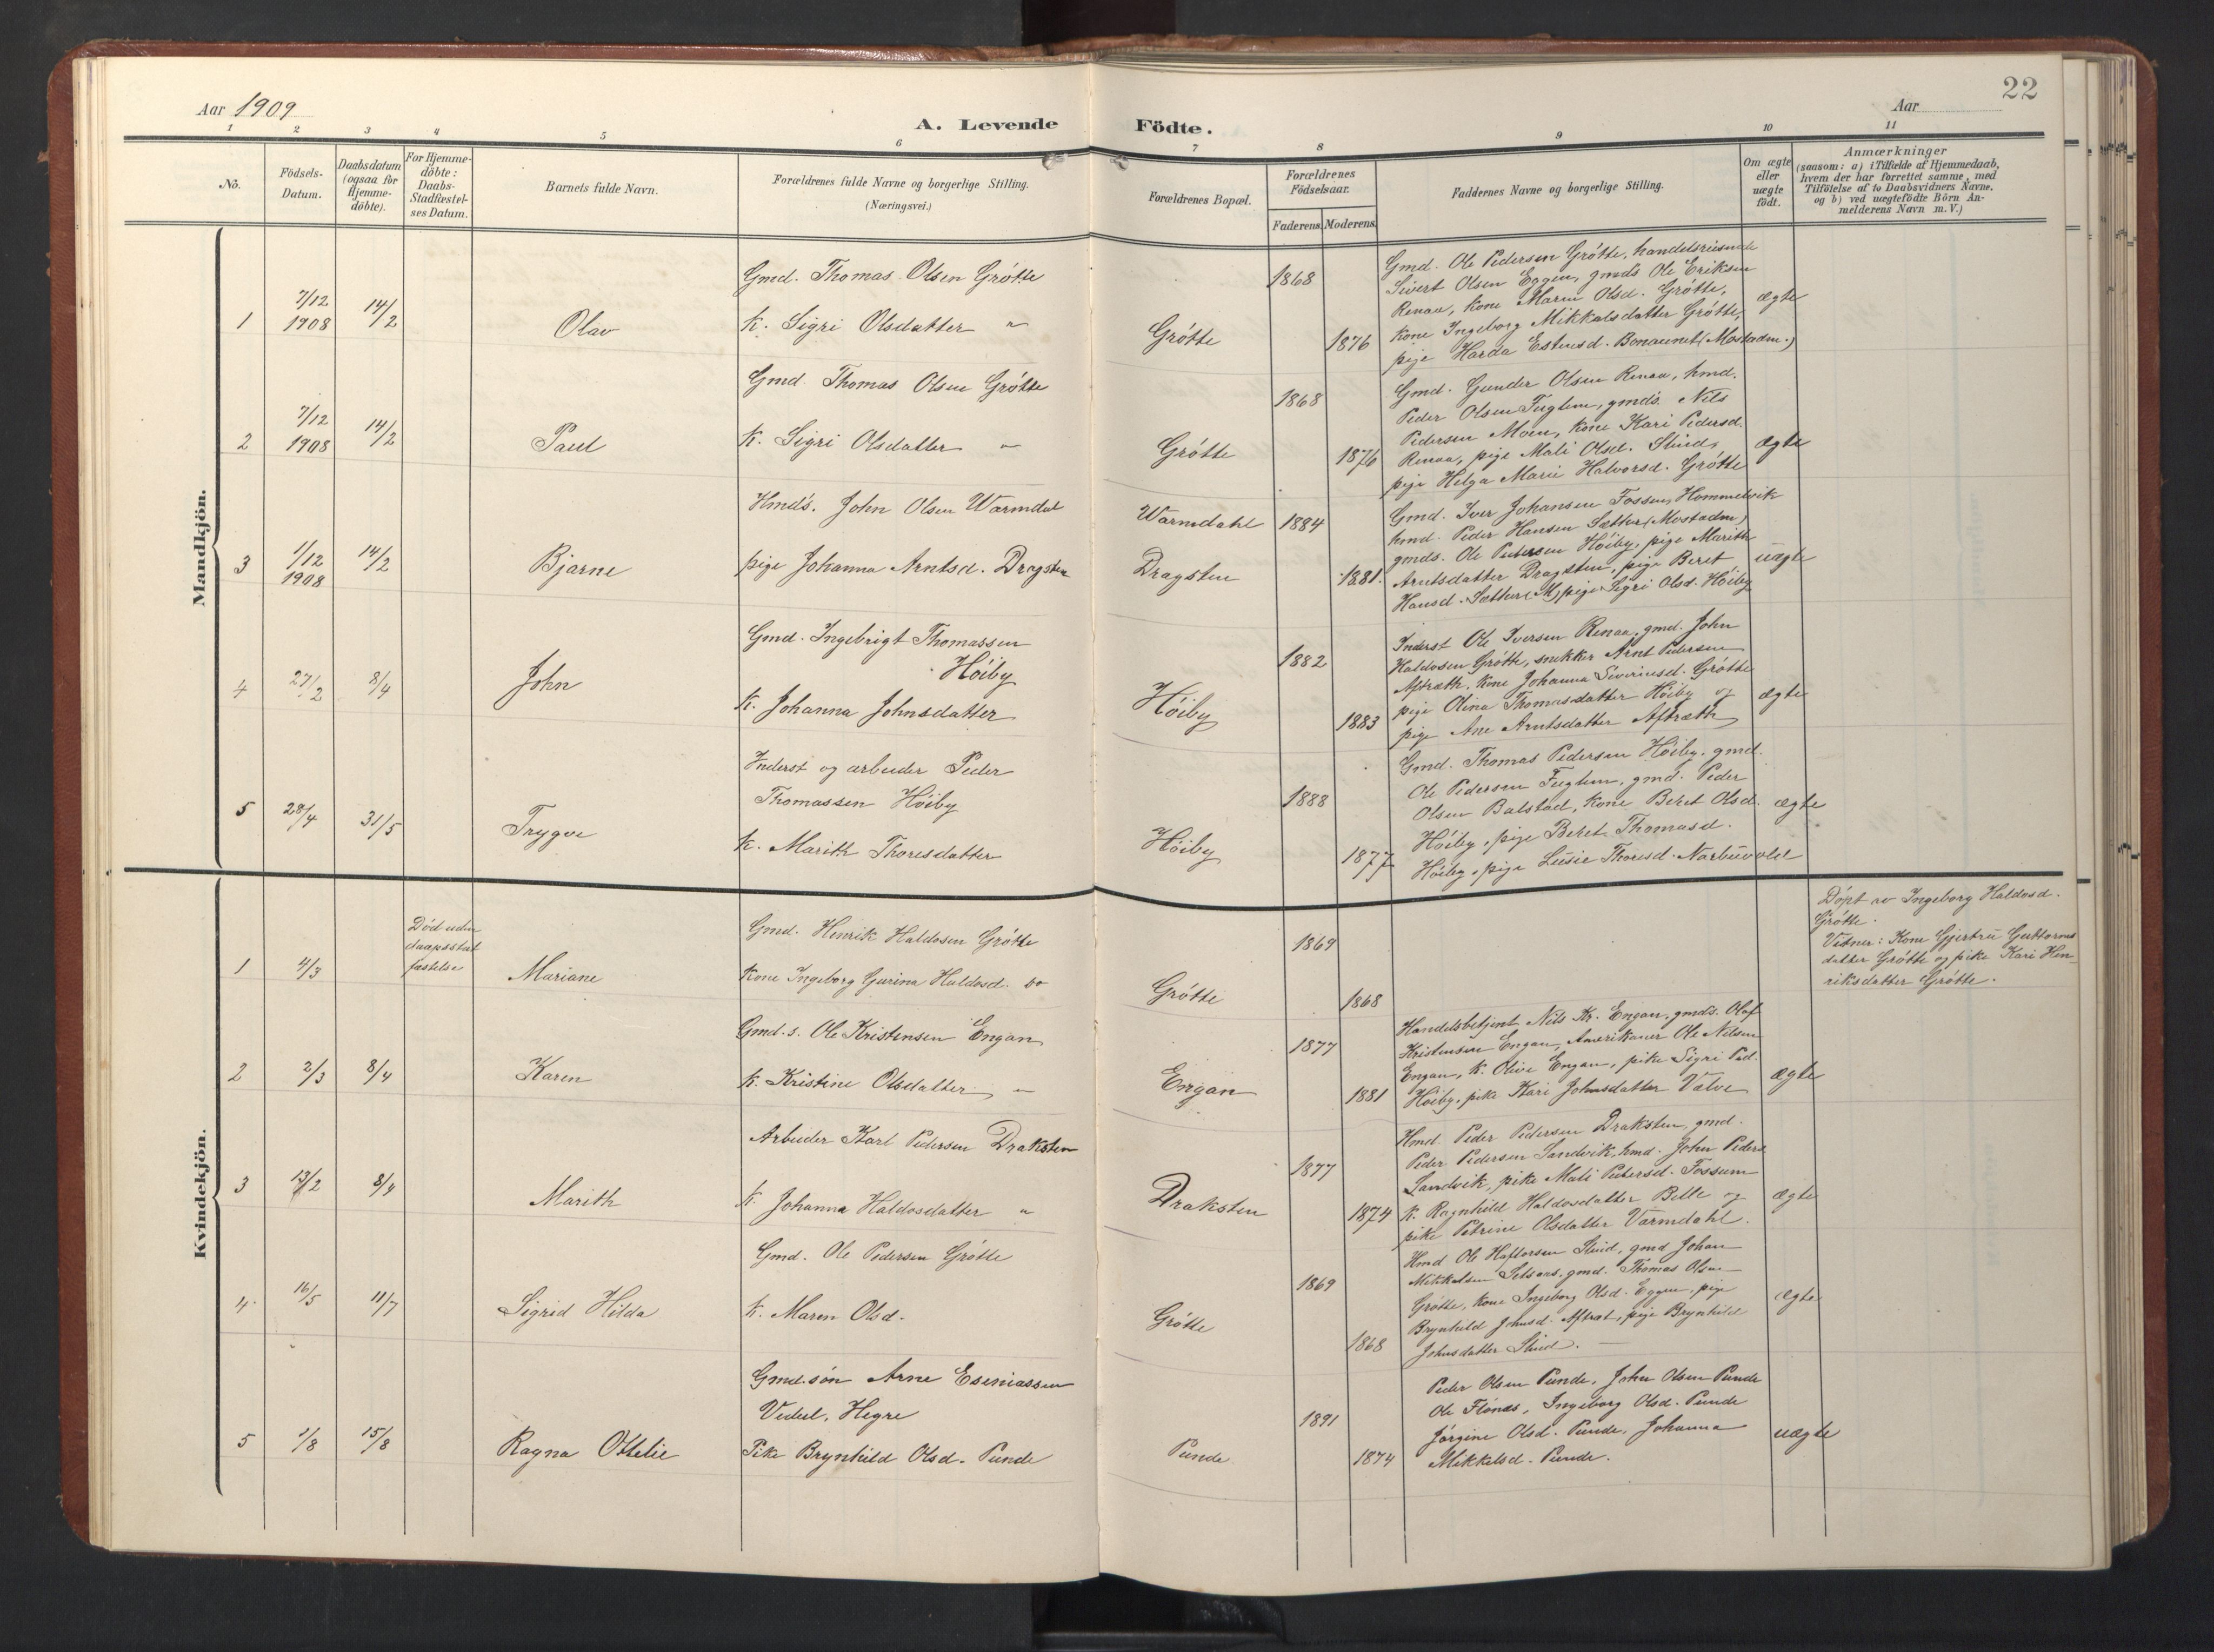 22
Aar 1909
Aar
A. Levende Födte.
1 2 3 4 5 6 7 8 9 10 11
No.
Födsels-
Datum.
Daabsdatum
(ogsaa for
Hjemme-
döbte).
For Hjemme-
döbte:
Daabs-
Stadfæstel-
ses Datum.
Barnets fulde Navn.
Forældrenes fulde Navne og borgerlige Stilling.
(Næringsvei.)
Forældrenes Bopæl.
Forældrenes
Födselsaar.
Faderens. Moderens.
Faddernes Navne og borgerlige Stilling.
Om ægte
eller
uægte
födt.
Anmærkninger
(saasom: a) i Tilfælde af Hjemmedaab,
hvem der har forrettet samme, med
Tilföielse af to Daabsvidners Navne.
og b) ved uægtefödte Börn An-
melderens Navn m. V.)
Mandkjön.
1
7/12
1908
14/2
Olav
Gmd. Thomas Olsen Grötte
k. Sigri Olsdatter "
Grötte
1868
1876
Gmd. Ole Pedersen Grötte, handelsreisende
Sivert Olsen Eggen, gmds Ole Eriksen
Renaa, kone Maren Olsd. Grötte,
kone Ingeborg Mikkalsdatter Grötte,
pige Harda Estensd. Bonaunet (Mostadm.)
ægte
2
7/12
1908
14/2
Paul
Gmd. Thomas Olsen Grötte
k. Sigri Olsdatter "
Grötte
1868
1876
Gmd. Gunder Olsen Renaa, hmd.
Peder Olsen Fuglem, gmds. Nils
Pedersen Moen, kone Kari Pedersd.
Renaa, pige Mali Olsd. Stud,
pige Helga Marie Halvorsd. Grötte
ægte
3
1/12
1908
14/2
Bjarne
Hmds. John Olsen Warmdal
pige Johanna Arntsd. Dragsten
Warmdahl
Dragsten
1884
1881.
Gmd. Iver Johansen Fossen, Hommelvik
hmd. Peder Hansen Sætter (Mostadm)
gmds. Ole Petersen Höiby, pige Marith
Arntsdatter Dragsten, pige Beret
Hansd. Sætter (M) pige Sigri Olsd. Höiby
uægte
4
27/2
8/4
John
Gmd. Ingebrigt Thomassen
Höiby
k. Johanna Johnsdatter
Höiby
1882
1883
Inderst Ole Iversen Renaa, gmd. John
Haldosen Grötte, snekker Arnt Pedersen
Aftræth, kone Johanna Siveriusd. Grötte
pige Olina Thomasdatter Höiby og
pige Ane Arntsdatter Aftræth
ægte
5
28/4
31/5
Trygve
Inderst og arbeider Peder
Thomassen Höiby
k. Marith Thoresdatter
Höiby
1888
1877
Gmd. Thomas Pedersen Höiby, gmd.
Ole Pedersen Fuglem, gmd. Peder
Olsen Balstad, kone Beret Olsd.
Höiby, pige Beret Thomasd.
Höiby, pige Lusie Thoresd. Narbuvold
ægte
Kvindekjön.
1
4/3
Död uden
daapsstad
fæstelse
Mariane
Gmd. Henrik Haldosen Grötte
Kone Ingeborg Gurina Haldosd. do
Grötte
1869
1868
Döpt av Ingeborg Haldosd.
Grötte.
Vitner: Kone Gjertru Guttorms
datter Grötte og pike Kari Hen-
riksdatter Grötte.
2
2/3
8/4
Karen
Gmd.s. Ole Kristensen Engan
k. Kristine Olsdatter "
Engan
1877
1881
Handelsbetjent Nils Kr. Engan, gmds. Olaf
Kristensen Engan, Amerikaner Ole Nilsen
Engan, k. Olive Engan, pike Sigri Ped.
Höiby, pike Kari Johnsdatter Valve
ægte
3
13/2
8/4
Marith
Arbeider Karl Pedersen Draksten
k. Johanna Haldosdatter "
Draksten
1877
1874
Hmd. Peder Pedersen Draksten, gmd.
Peder Pedersen Sandvik, hmd. John Peders
Sandvik, pike Mali Petersd. Fossum
k. Ragnhild Haldosdatter Belle og
pike Petrine Olsdatter Varmdahl.
ægte
4
16/5
11/7
Sigrid Hilda
Gmd. Ole Pedersen Grötte
k. Maren Olsd.
Grötte
1869
1868
Hmd Ole Haftorsen Stud, gmd Johan
Mikkalsen Selsaas, gmd. Thomas Olsen
Grötte, kone Ingeborg Olsd. Eggen, pige
Brynhild Johnsd. Aftræt, pige Brynhild
Johnsdatter Stud.
ægte
5
1/8
15/8
Ragna Ottelie
Gmd.sön Arne Eseniassen
Vedul, Hegre
Pike Brynhild Olsd. Punde
Punde
1891
1874
Peder Olsen Punde, John Olsen Punde
Ole Flönes, Ingeborg Olsd. Punde
Jörgine Olsd. Punde, Johanna
Mikkelsd. Punde.
uægte